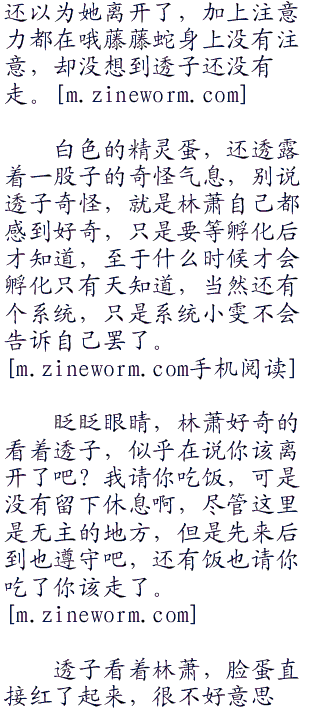 还以为她离开了，加上注意
力都在哦藤藤蛇身上没有注
意，却没想到透子还没有
走。[m.zineworm.com]
白色的精灵蛋，还透露
着一股子的奇怪气息，别说
透子奇怪，就是林萧自己都
感到好奇，只是要等孵化后
才知道，至于什么时候才会
孵化只有天知道，当然还有
个系统，只是系统小雯不会
告诉自己罢了。
[m.zineworm.com手机阅读]
眨眨眼睛，林萧好奇的
看着透子，似乎在说你该离
开了吧？我请你吃饭，可是
没有留下休息啊，尽管这里
是无主的地方，但是先来后
到也遵守吧，还有饭也请你
吃了你该走了。
[m.zineworm.com]
透子看着林萧，脸蛋直
接红了起来，很不好意思